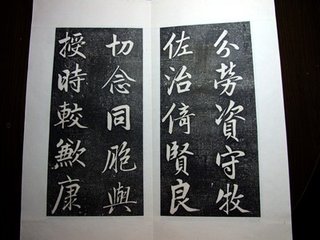 分勞資守牧
佐治倚賢良
切念同胞與
授時較歉康